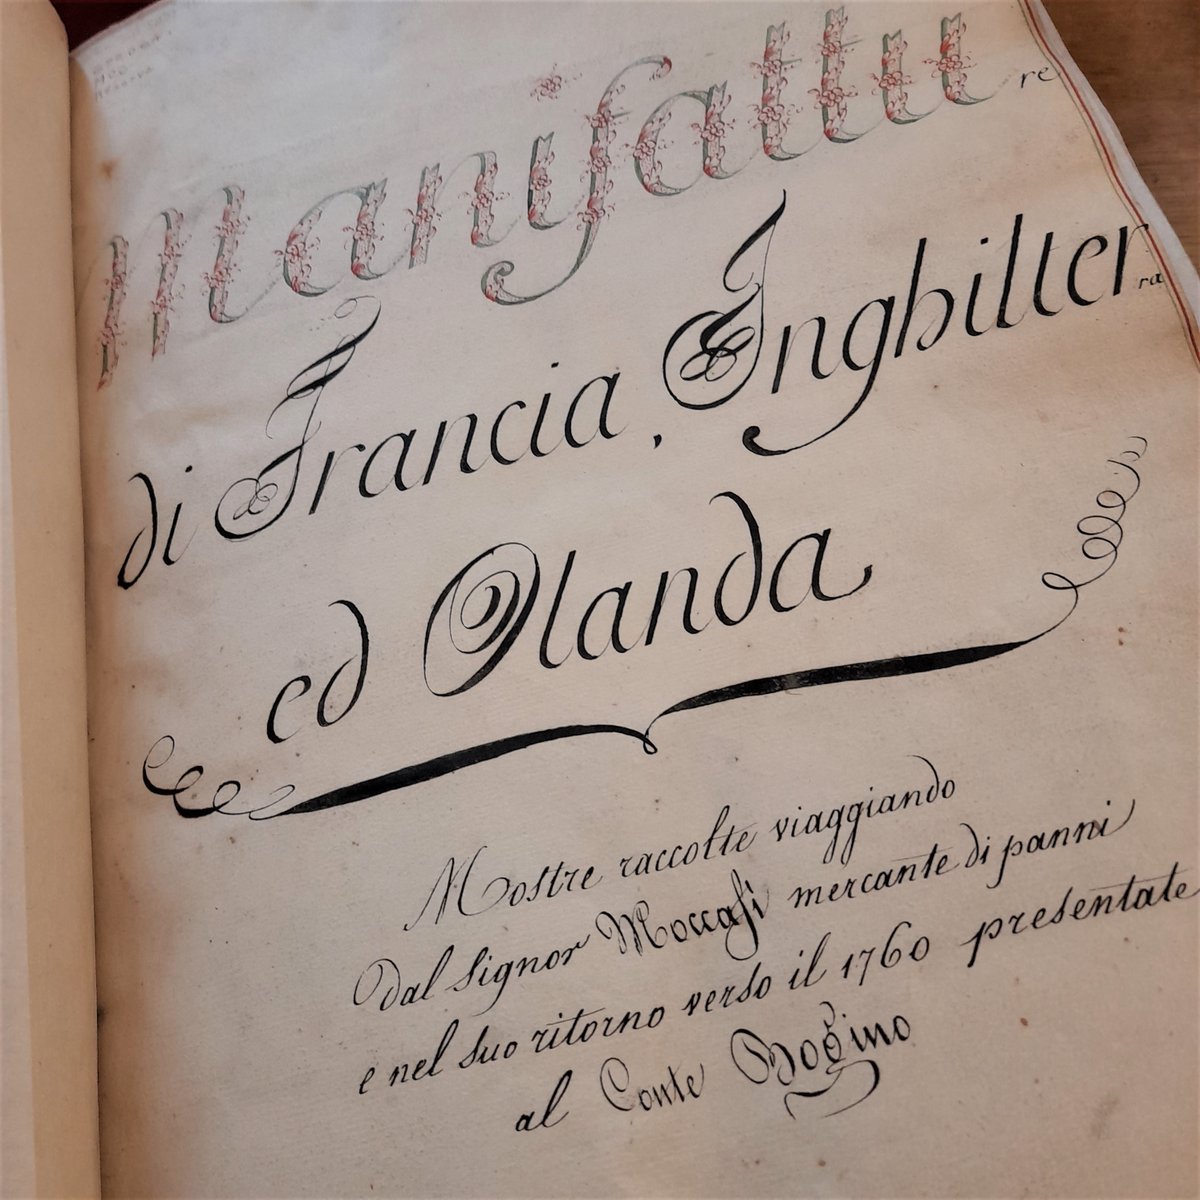 Manifatture
di Francia, Inghilterra
ed Olanda
Mostre raccolte viaggiando
dal Signor Moccafi mercante di panni
e nel suo ritorno verso il 1760 presentate
al Conte Bogino